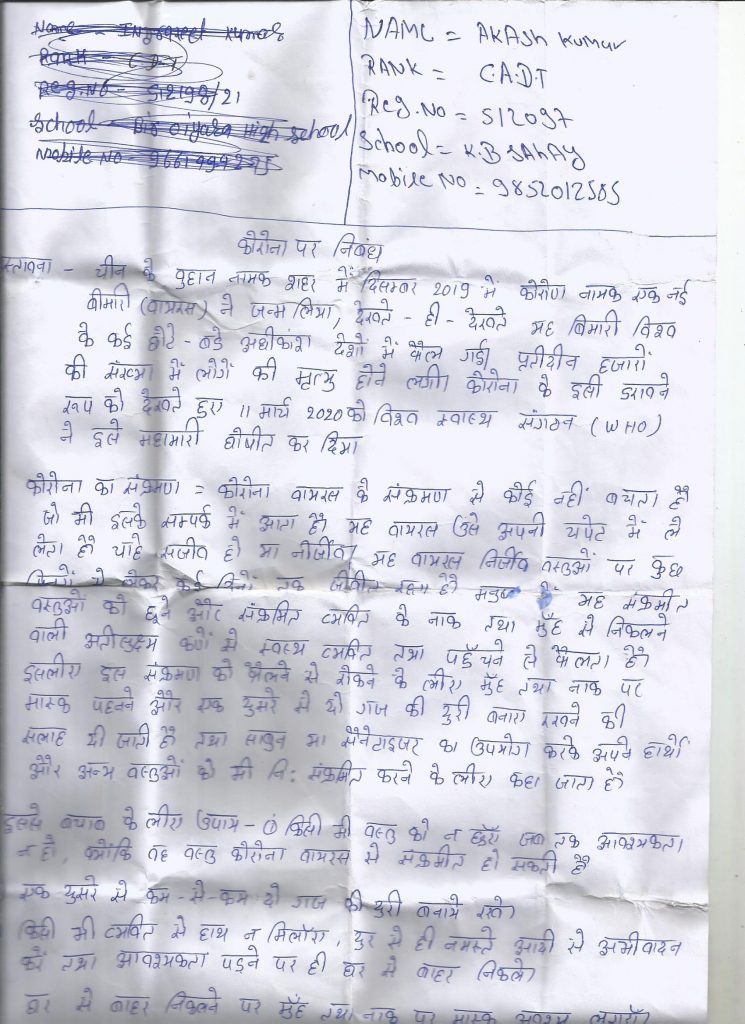 NAME = AKASH KUMAR
RANK = CADT
Reg.No = 512097
School = K.B SAHAY
Mobile No = 9852012505
कोरोना पर निबंध
स्तावना - चीन के वुहान नामक शहर में दिसम्बर 2019 में कोरोना नामक एक नई
बीमारी (वायरस) ने जन्म लिया, देखते - ही - देखते यह बिमारी विश्व
के कई छोटे - बडे अधीकांश देशों में फैल गई। प्रतीदीन हजारों
की संख्या में लोगों की मृत्यु होने लगी। कोरोना के इसी डरावने
रूप को देखते हुए 11 मार्च 2020 को विश्व स्वास्थ संगठन (WHO)
ने इसे महामारी घोषीत कर दिया
कोरोना का संक्रमण = कोरोना वायरस के संक्रमण से कोई नहीं बचता है
जो भी इसके सम्पर्क में आता है। यह वायरस उसे अपनी चपेट में ले
लेता है। चाहे सजीव हो या नीर्जीव। यह वायरस निर्जीव वस्तुओं पर कुछ
लेकर कई दिनों तक जीवीत रहता है। यह संक्रमीत
वस्तुओं को छूने और संक्रमित व्यक्ति के नाक तथा मुँह से निकलने
वाली अतीसूक्ष्म कणों से स्वस्थ व्यक्ति तथा पहुँचने से फैलता है।
इसलीए इस संक्रमण को फैलने से रोकने के लीए मुँह तथा नाक पर
मास्क पहनने और एक दुसरे से दो गज की दुरी बनाए रखने की
सलाह दी जाती है तथा साबुन या सैनेटाइजर का उपयोग करके अपने हाथों
और अन्य वस्तुओं को भी नि: संक्रमित करने के लीए कहा जाता है।
इससे बचाव के लीए उपाय - ① किसी भी वस्तु को न छुएँ जब तक आवश्यकता
न हो, क्योंकि वह वस्तु कोरोना वायरस से संक्रमीत हो सकती है
एक दुसरे से कम - से - कम दो गज की दुरी बनाये रखे।
किसी भी व्यक्ति से हाथ न मिलाएँ, दुर से ही नमस्ते आदी से अभीवादन
करें तथा आवश्यकता पड़ने पर ही घर से बाहर निकले।
घर से बाहर निकलने पर मुँह तथा नाक पर मास्क अवश्य लगाएँ।